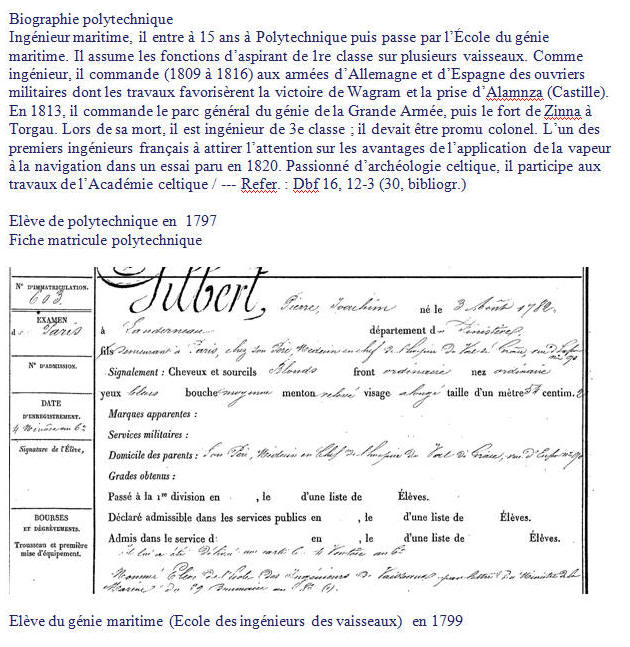 Biographie polytechnique
Ingénieur maritime, il entre à 15 ans à Polytechnique puis passe par l'École du génie
maritime. Il assume les fonctions d'aspirant de 1re classe sur plusieurs vaisseaux. Comme
ingénieur, il commande (1809 à 1816) aux armées d'Allemagne et d'Espagne des ouvriers
militaires dont les travaux favorisèrent la victoire de Wagram et la prise d'Alamnza (Castille).
En 1813, il commande le parc général du génie de la Grande Armée, puis le fort de Zinna à
Torgau. Lors de sa mort, il est ingénieur de 3e classe ; il devait être promu colonel. L'un des
premiers ingénieurs français à attirer l'attention sur les avantages de l'application de la vapeur
à la navigation dans un essai paru en 1820. Passionné d'archéologie celtique, il participe aux
travaux de l'Académie celtique / --- Refer. : Dbf 16, 12-3 (30, bibliogr.)
Elève de polytechnique en 1797
Fiche matricule polytechnique
N° D'IMMATRICULATION.
603.
EXAMEN
de Paris
N° D'ADMISSION.
DATE
D'ENREGISTREMENT.
Signature de l'Élève,
BOURSES
ET DÉGRÈVEMENTS.
Trousseau et première
mise d'équipement.
Gilbert, Pierre, Joachim né le 3 Août 1782.
à Landerneau département du Finistère,
fils demeurant à Paris, chez son Père, Médecin en chef de l'hospice du Val de Grâce,
Signalement : Cheveux et sourcils Blonds front ordinaire nez ordinaire
yeux bleus bouche moyenne menton relevé visage alongé taille d'un mètre 54 centim.
Marques apparentes :
Services militaires :
Domicile des parents : Son Père, Médecin en Chef de l'hospice du Val de Grâce,
Grades obtenus :
Passé à la 1re division en , le d'une liste de Élèves.
Déclaré admissible dans les services publics en , le d'une liste de Élèves.
Admis dans le service d: en , le d'une liste de Élèves.
il lui a été délivré une carte le 4 Ventôse an 6e
Nommé Elève de l'école des Ingénieurs de Vaisseaux par lettre du Ministre de la
Marine du 29 Brumaire an 8e
Elève du génie maritime (Ecole des ingénieurs des vaisseaux) en 1799